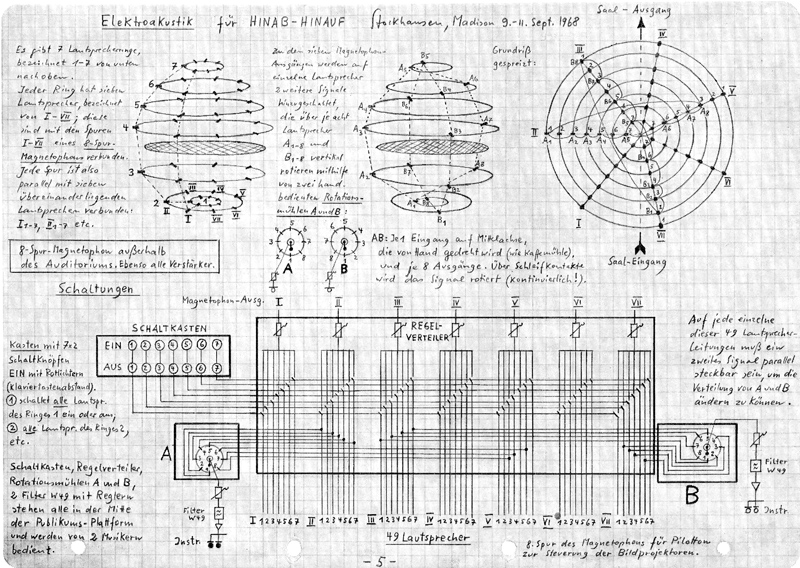 Elektroakustik für HINAB-HINAUF Stockhausen, Madison 9.-11. Sept. 1968
Es gibt 7 Lautsprecherringe,
bezeichnet 1-7 von unten
nach oben.
Jeder Ring hat sieben
Lautsprecher, bezeichnet
von I-VII; diese
sind mit den Spuren
I-VII eines 8-Spur-
Magnetophons verbunden.
Jede Spur ist also
parallel mit sieben
übereinanderliegenden
Lautsprechern verbunden:
I1-7, II1-7 etc.
8-Spur-Magnetophon außerhalb
des Auditoriums. Ebenso alle Verstärker.
Zu den sieben Magnetophon-
Ausgängen werden auf
einzelne Lautsprecher
2 weitere Signale
hinzugeschaltet,
die über je acht
Lautsprecher
A1-8 und
B1-8 vertikal
rotieren mithilfe
von zwei hand-
bedienten Rotations-
mühlen A und B:
A
B
AB: Je 1 Eingang auf Mittelachse,
die von Hand gedreht wird (wie Kaffemühle),
und je 8 Ausgänge. Über Schleifkontakte
wird das Signal rotiert (kontinuierlich!).
Grundriß
gespreizt:
Saal-Ausgang
III
IV
II
V
VI
I
VII
Saal-Eingang
Schaltungen
Magnetophon-Ausg. I II III IV V VI VII
SCHALTKASTEN
EIN 1 2 3 4 5 6 7
AUS 1 2 3 4 5 6 7
REGEL-
VERTEILER
Kasten mit 7x2
Schaltknöpfen
EIN mit Rotlichtern
(Klaviertastenabstand).
1 schaltet alle Lautspr.
des Ringes 1 ein oder aus,
2 alle Lautspr. des Ringes 2,
etc.
Schaltkasten, Regelverteiler,
Rotationsmühlen A und B,
2 Filter W49 mit Reglern
stehen alle in der Mitte
der Publikums-Plattform
und werden von 2 Musikern
bedient.
A
Filter
W49
Instr
Auf jede einzelne
dieser 49 Lautsprecher-
Leitungen muß ein
zweites Signal parallel
steckbar sein, um die
Verteilung von A und B
ändern zu können.
B
Filter
W49
Instr.
I 1234567 II 1234567 III 1234567 IV 1234567 V 1234567 VI 1234567 VII 1234567
49 Lautsprecher
8. Spur des Magnetophons für Pilotton
zur Steuerung der Bildprojektoren.
-5-